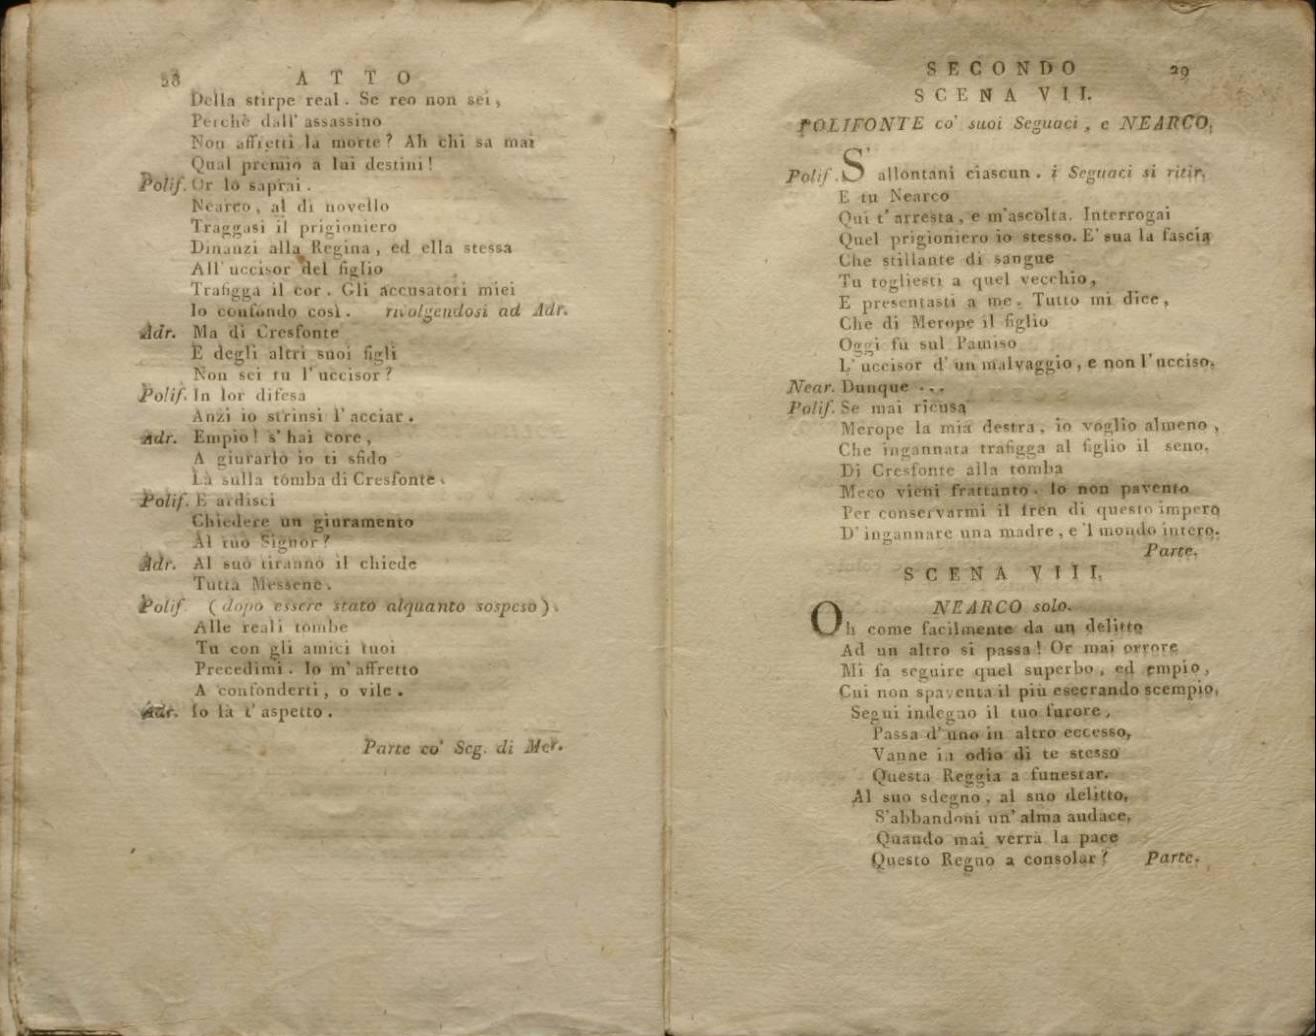 28 ATTO
Della stirpe real. Se reo non sei,
Perchè dall' assassino
Non affretti la morte? Ah chi sa mai
Qual premio a lui destini!
Polif. Or lo saprai.
Nearco, al di novello
Traggasi il prigioniero
Dinanzi alla Regina, ed ella stessa
All' uccisor del figlio
Trafigga il cor. Gli accusatori miei
Io confondo così. rivolgendosi ad Adr.
Adr. Ma di Cresfonte
E degli altri suoi figli
Non sei tu l' uccisor?
Polif. In lor difesa
Anzi io strinsi l' acciar.
Adr. Empio! s' hai core,
A giurarlo io ti sfido
Là sulla tomba di Cresfonte.
Polif. E ardisci
Chiedere un giuramento
Al tuo Signor?
Adr. Al suo tiranno il chiede
Tutta Messene.
Polif. (dopo essere stato alquanto sospeso).
Alle reali tombe
Tu con gli amici tuoi
Precedimi. Io m' affretto
A confonderti, o vile.
Adr. Io là t' aspetto.
Parte co' Seg. di Mer.
SECONDO 29
SCENA VII.
POLIFONTE co' suoi Seguaci, e NEARCO.
Polif. S' allontani ciascun. i Seguaci si ritir.
E tu Nearco
Qui t' arresta, e m'ascolta. Interrogai
Quel prigioniero io stesso. E' sua la fascia
Che stillante di sangue
Tu togliesti a quel vecchio,
E presentasti a me. Tutto mi dice,
Che di Merope il figlio
Oggi fu sul Pamiso
L' uccisor d' un malvaggio, e non l' ucciso.
Near. Dunque ...
Polif. Se mai ricusa
Merope la mia destra, io voglio almeno,
Che ingannata trafigga al figlio il seno.
Di Cresfonte alla tomba
Meco vieni frattanto. Io non pavento
Per conservarmi il fren di questo impero
D' ingannare una madre, e 'l mondo intero.
Parte.
SCENA VIII.
NEARCO solo.
Oh come facilmente da un delitto
Ad un altro si passa! Or mai orrore
Mi fa seguire quel superbo, ed empio,
Cui non spaventa il più esecrando scempio.
Segui indegno il tuo furore,
Passa d' uno in altro eccesso,
Vanne in odio di te stesso
Questa Reggia a funestar.
Al suo sdegno, al suo delitto,
S'abbandoni un' alma audace,
Quando mai verrà la pace
Questo Regno a consolar? Parte.